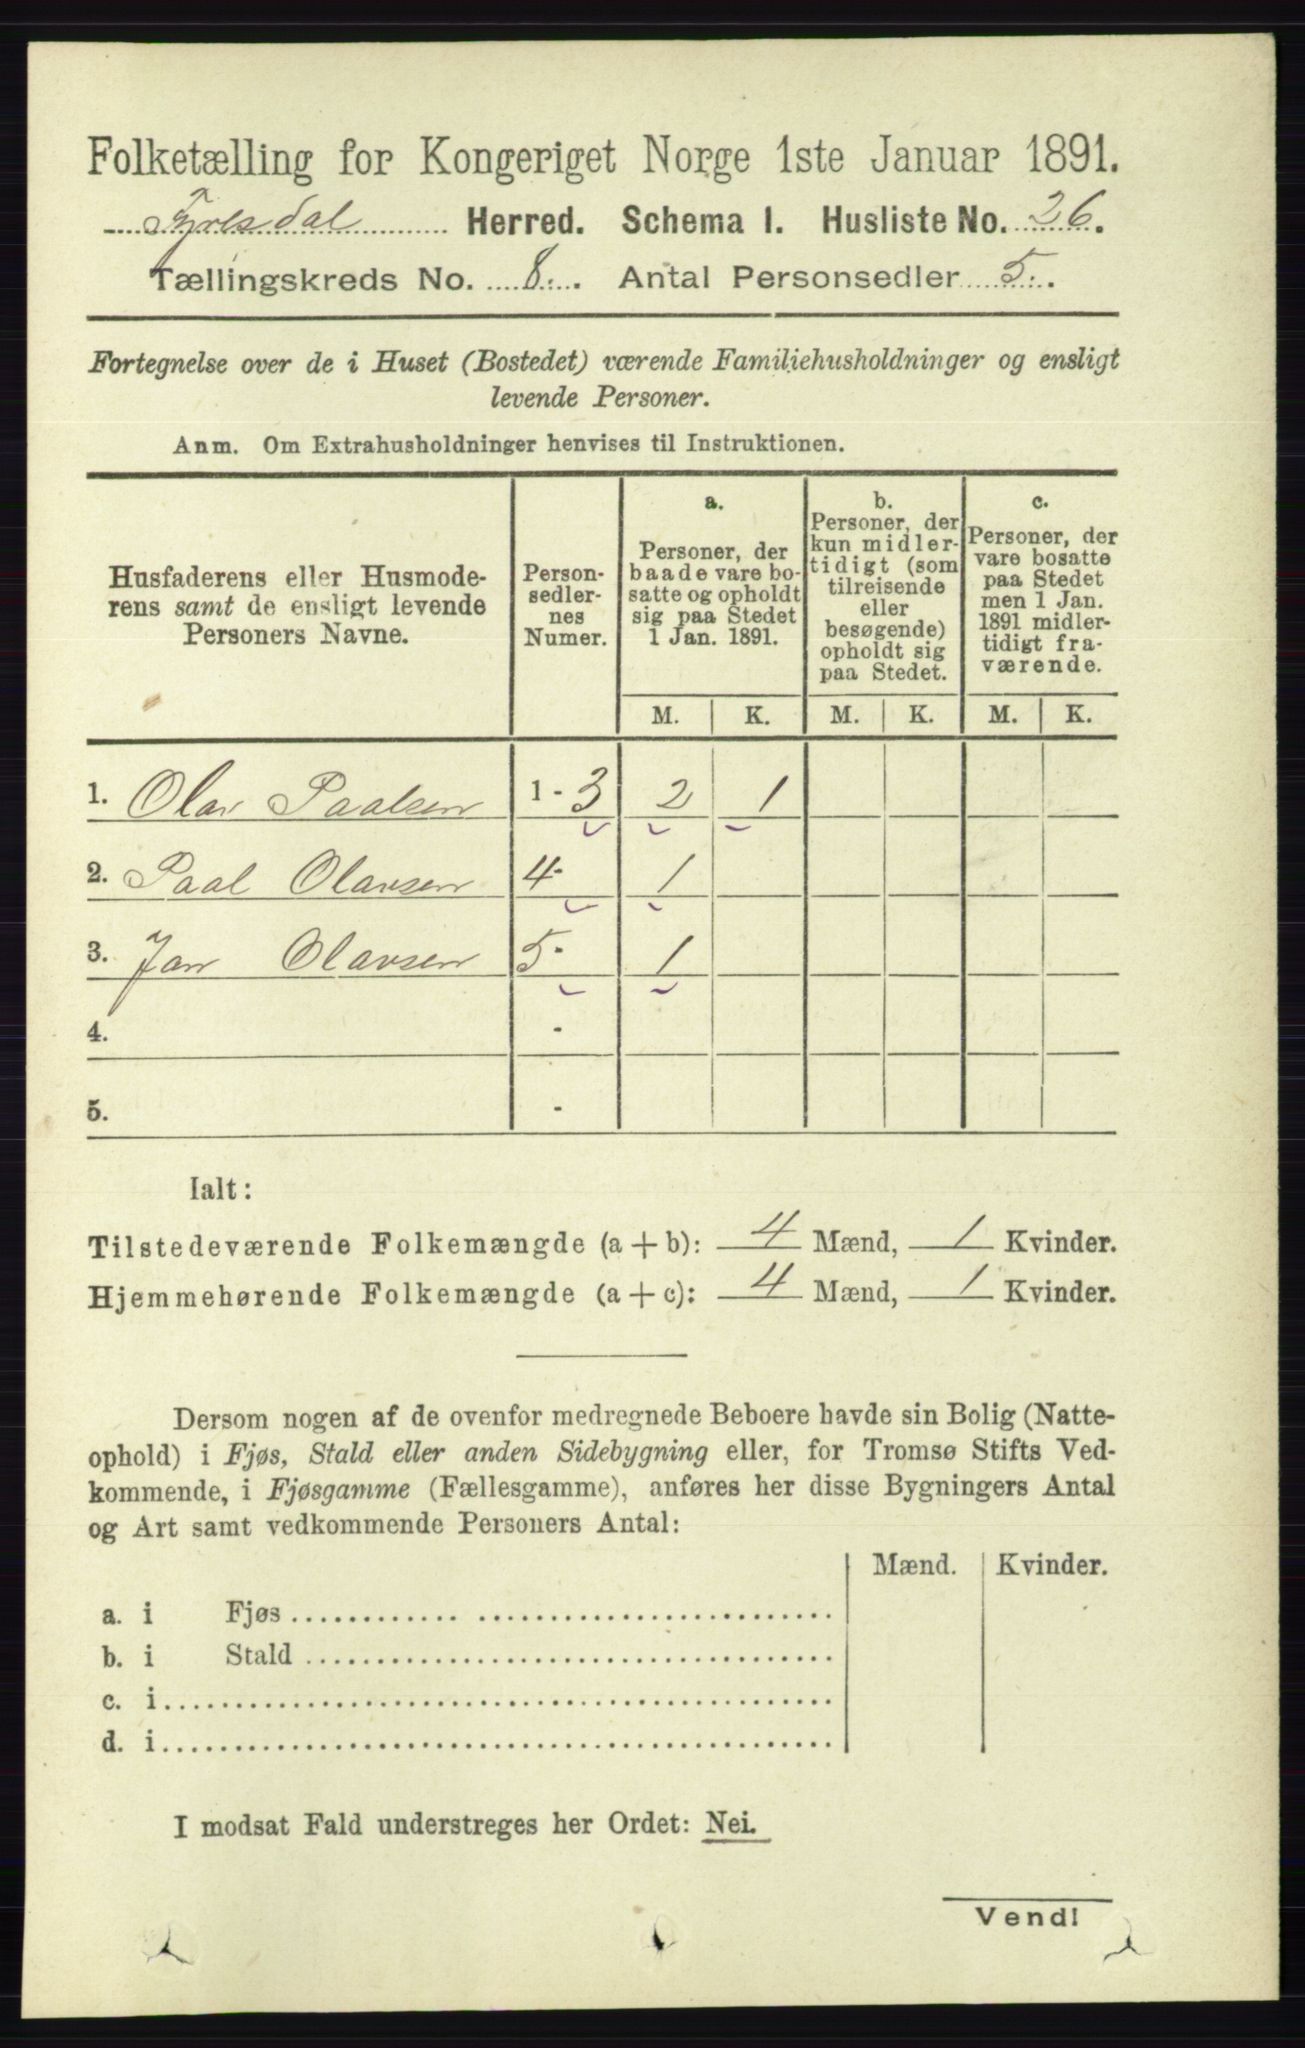 Folketælling for Kongeriget Norge 1ste Januar 1891.
Tyrlsdal Herred. Schema I. Husliste No. 26.
Tællingskreds No. 8. Antal Personsedler 5.
Fortegnelse over de i Huset (Bostedet) værende Familiehusholdninger og ensligt
levende Personer.
Anm. Om Extrahusholdninger henvises til Instruktionen.
Husfaderens eller Husmode-
rens samt de ensligt levende
Personers Navne.
Person-
sedler-
nes
Numer.
a.
Personer, der
baade vare bo-
satte og opholdt
sig paa Stedet
1 Jan. 1891.
b.
Personer, der
kun midler-
tidigt (som
tilreisende
eller
besøgende)
opholdt sig
paa Stedet.
c.
Personer, der
vare bosatte
paa Stedet
men 1 Jan.
1891 midler-
tidigt fra-
værende.
M. K. M. K. M. K.
1. Olav Paalsen 1 - 3 2 1
2. Paal Olavsen 4 - 1
3. Jan Olavsen 5 - 1
4. -
5. -
Ialt:
Tilstedeværende Folkemængde (a + b): 4 Mænd, 1 Kvinder.
Hjemmehørende Folkemængde (a + c): 4 Mænd, 1 Kvinder.
Dersom nogen af de ovenfor medregnede Beboere havde sin Bolig (Natte-
ophold) i Fjøs, Stald eller anden Sidebygning eller, for Tromsø Stifts Ved-
kommende, i Fjøsgamme (Fællesgamme), anføres her disse Bygningers Antal
og Art samt vedkommende Personers Antal:
Mænd. Kvinder.
a. i Fjøs
b. i Stald
c. i
d. i
I modsat Fald understreges her Ordet: Nei.
Vend!